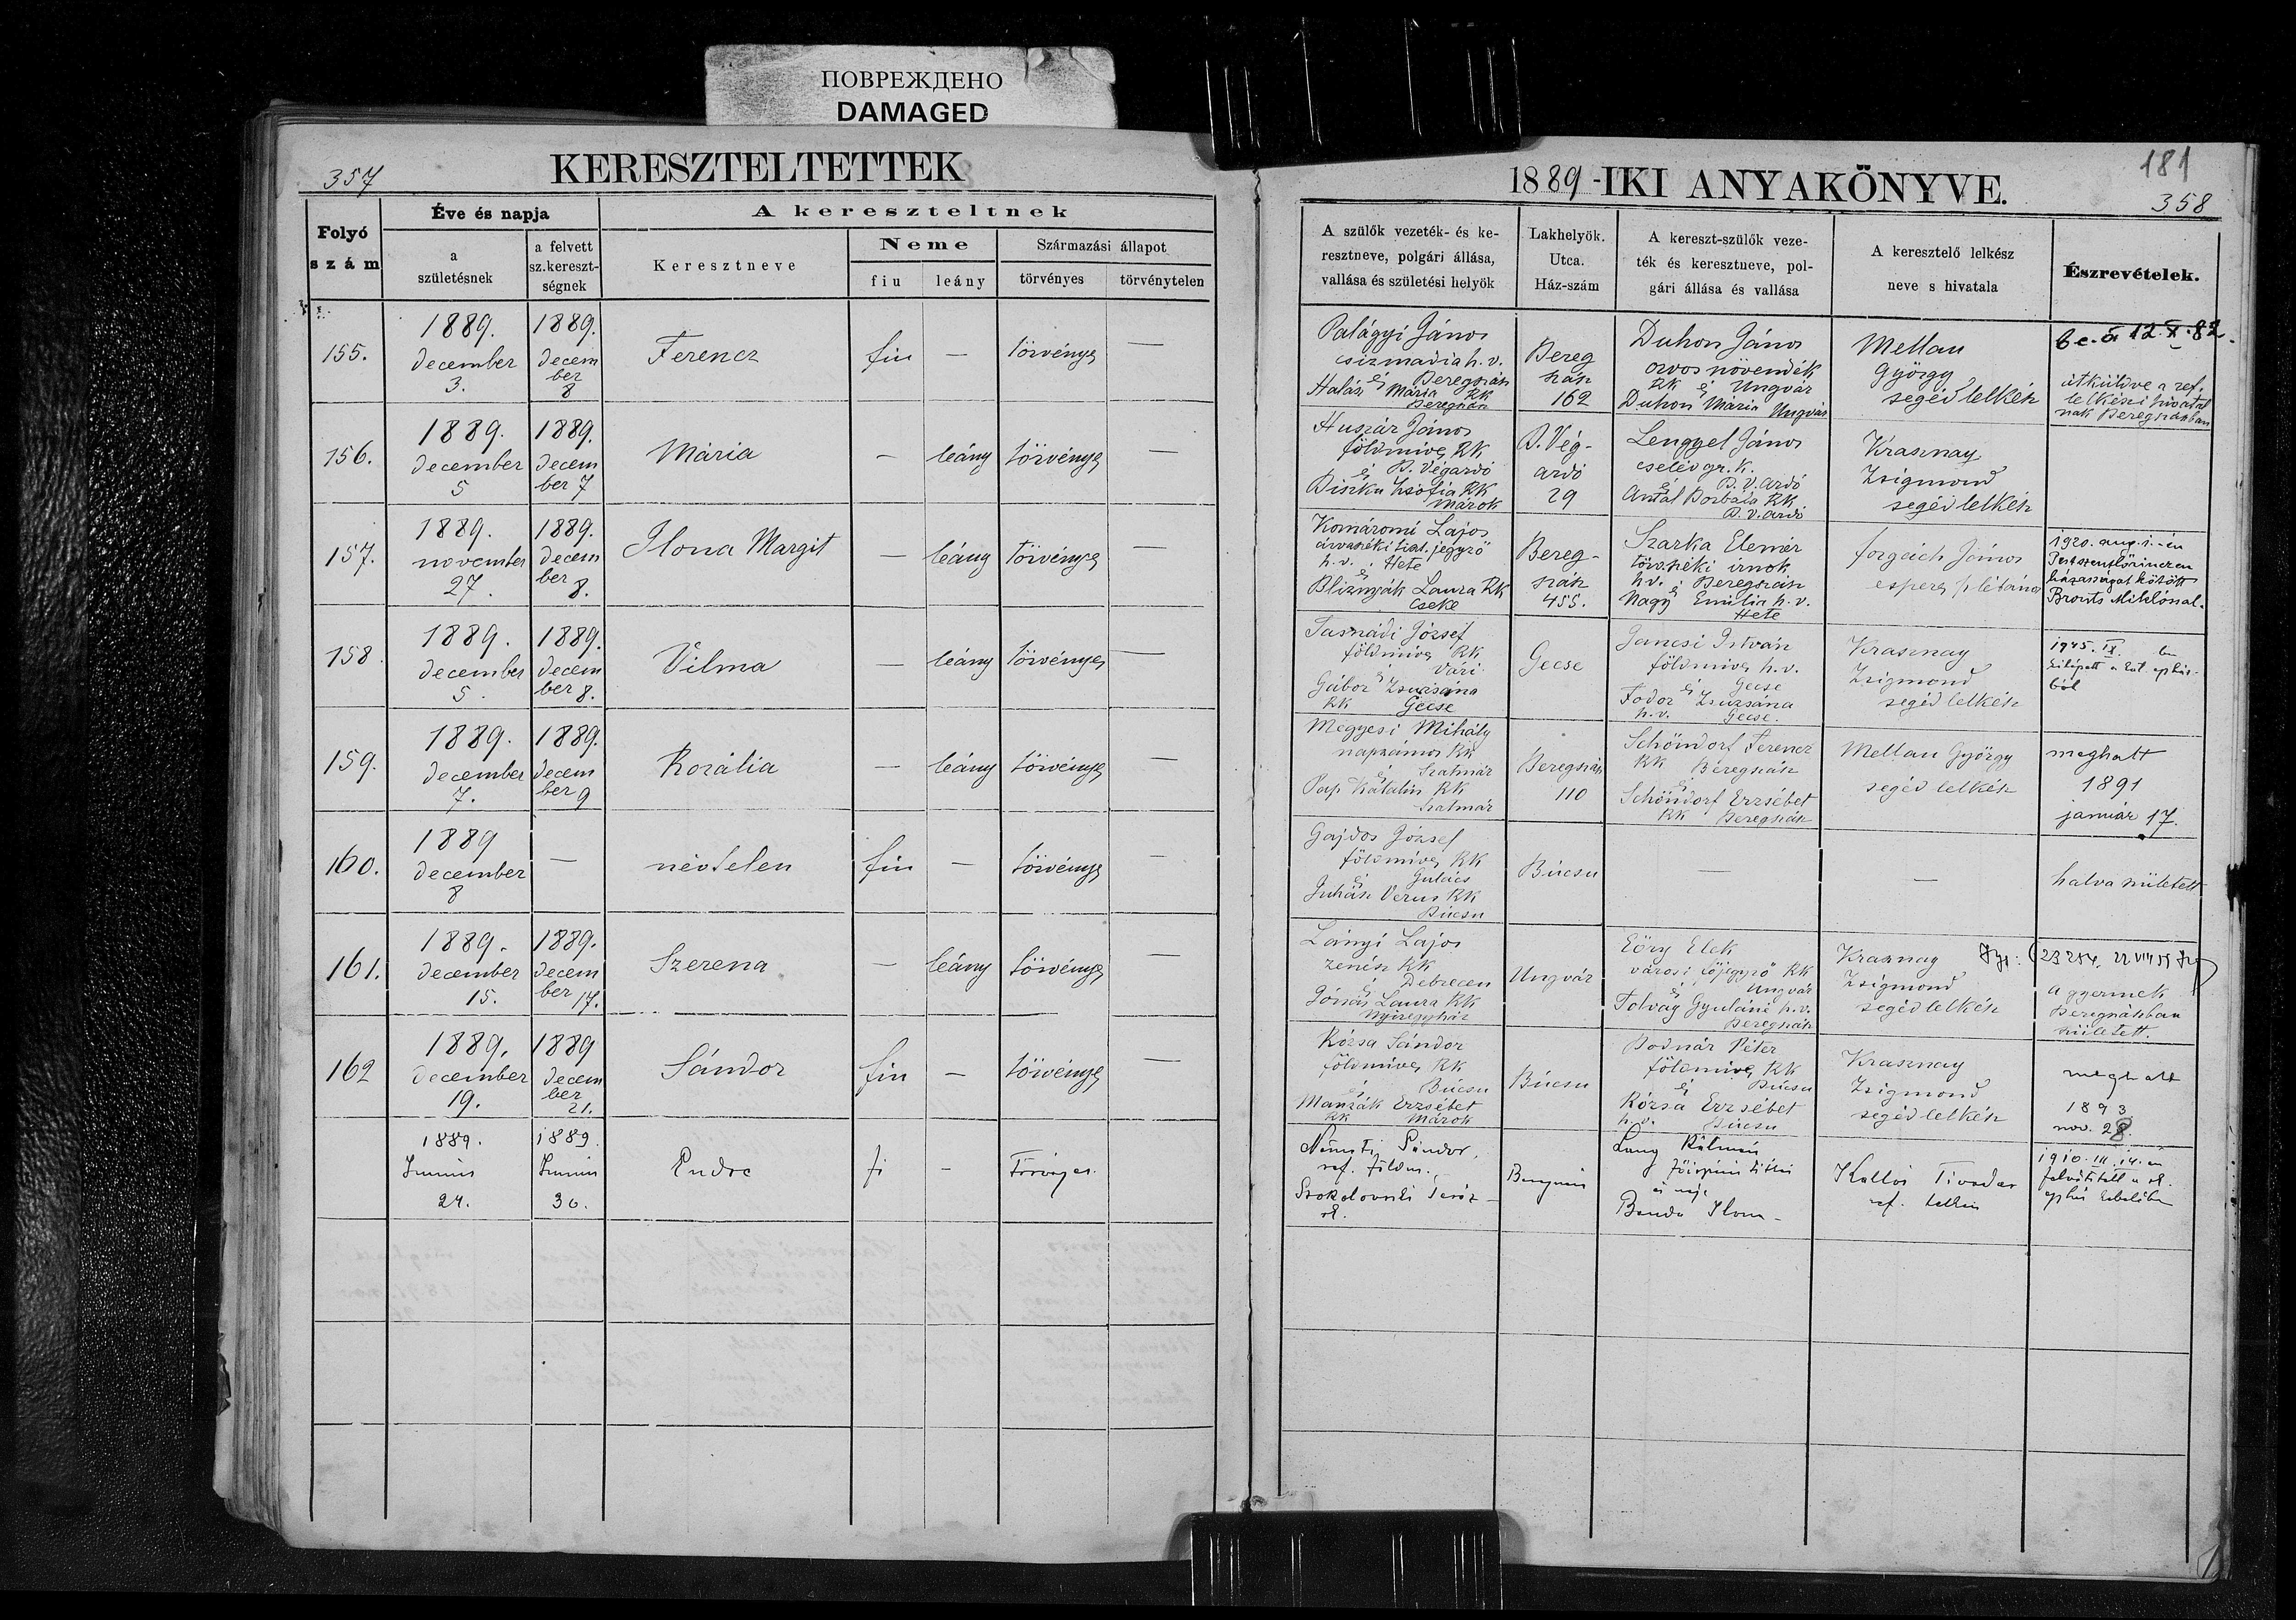 ПОВРЕЖДЕНО
DAMAGED
357
KERESZTELTETTEK
Folyó
szám
Éve és napja
a
születésnek
a felvett
sz.kereszt-
ségnek
A kereszteltnek
Keresztneve
Neme
fiu
leány
Származási állapot
törvényes
törvénytelen
155.
1889.
december
3.
1889.
decem
ber
8
Ferencz
fiu
—
törvényes
—
156.
1889.
december
5
1889.
decem
ber 7
Mária
—
leány
törvényes
—
157.
1889.
november
27.
1889.
decem
ber
8.
Ilona Margit
—
leány
törvényes
—
158
1889.
december
5.
1889.
decem
ber 8.
Vilma
—
leány
törvényes
—
159.
1889.
december
7.
1889.
decem
ber 9
Rozália
—
leány
törvényes
—
160.
1889
december
8
—
névtelen
fiu
—
törvényes
—
161.
1889.
december
15.
1889.
decem
ber 17.
Szerena
—
leány
törvényes
—
162
1889.
december
19.
1889
decem
ber
21.
Sándor
fiu
—
törvényes
—
1889.
Junius
24.
1889.
Junius
30.
Endre
fi
—
Törvényes.
181
1889-IKI ANYAKÖNYVE.
358
A szülők vezeték- és ke-
resztneve, polgári állása,
vallása és születési helyök
Lakhelyök.
Utca.
Ház-szám
A kereszt-szülők veze-
ték és keresztneve, pol-
gári állása és vallása
A keresztelő lelkész
neve s hivatala
Észrevételek.
Palágyi János
csizmadia h. v.
és Beregszász
Halász Mária RK
Beregszász
Bereg
szász
162
Duhon János
orvosnövendék
RK és Ungvár
Duhon Mária Ungvár
Mellau
György
segédlelkész
12. X. 82.
átküldve a ref.
lelkészi hivatal
nak Beregszászban
Huszár János
földmíves RK
és B. Végardó
Diszku Zsófia RK
Márok
B. Vég-
ardó
29
Lengyel János
cseléd gr. k.
és B. V. Ardó
Antal Borbála RK
B. V. Ardó
Krasznay
Zsigmond
segédlelkész
Komáromi Lajos
árvaszéki tiszt. jegyző
h. v. és Hete
Bliznyák Laura RK
Cseke
Bereg-
szász
455.
Szarka Elemér
törvszéki irnok
h. v. és Beregszász
Nagy Emilia h. v.
Hete
forgách János
esperes plébános
1920. aug. 1.-én
Pestszentlőrinczen
házasságot kötött
Miklóssal.
Tasnádi József
földmíves RK
és Vári
Gábor Zsuzsána
RK Gecse
Gecse
Jancsi István
földmíves h. v.
és Gecse
Fodor Zsuzsána
h. v. Gecse.
Krasznay
Zsigmond
segédlelkész
1945. IX.
kilépett a kat. egyház-
ból
Megyesi Mihály
napszámos RK
és Szatmár
Pap Katalin RK
Szatmár
Beregszász
110
Schöndorf Ferencz
RK Beregszász
és
Schöndorf Erzsébet
RK Beregszász
Mellau György
segédlelkész
meghalt
1891
január 17.
Gajdos József
földmíves RK
és Gulács
Juhász Verus RK
Búcsu
Búcsu
—
—
halva született
Lányi Lajos
zenész RK
és Debrecen
Jónás Laura RK
Nyíregyház
Ungvár
Eöry Elek
városi főjegyző RK
és Ungvár
Tolvay Gyuláné h. v.
Beregszász
Krasznay
Zsigmond
segédlelkész
a gyermek
Beregszászban
született.
Rózsa Sándor
földmíves RK
és Búcsu
Manzák Erzsébet
RK Márok
Búcsu
Bodnár Péter
földmíves RK
és Búcsu
Rózsa Erzsébet
h. v. Búcsu
Krasznay
Zsigmond
segédlelkész
meghalt
1893
nov. 28.
Németi Sándor,
ref. földm.
Szokolovszki Teréz
Lang Kálmán
és neje
Banda Ilona
Kallói Tivadar
ref. lelkész
1910. III. 14.-én